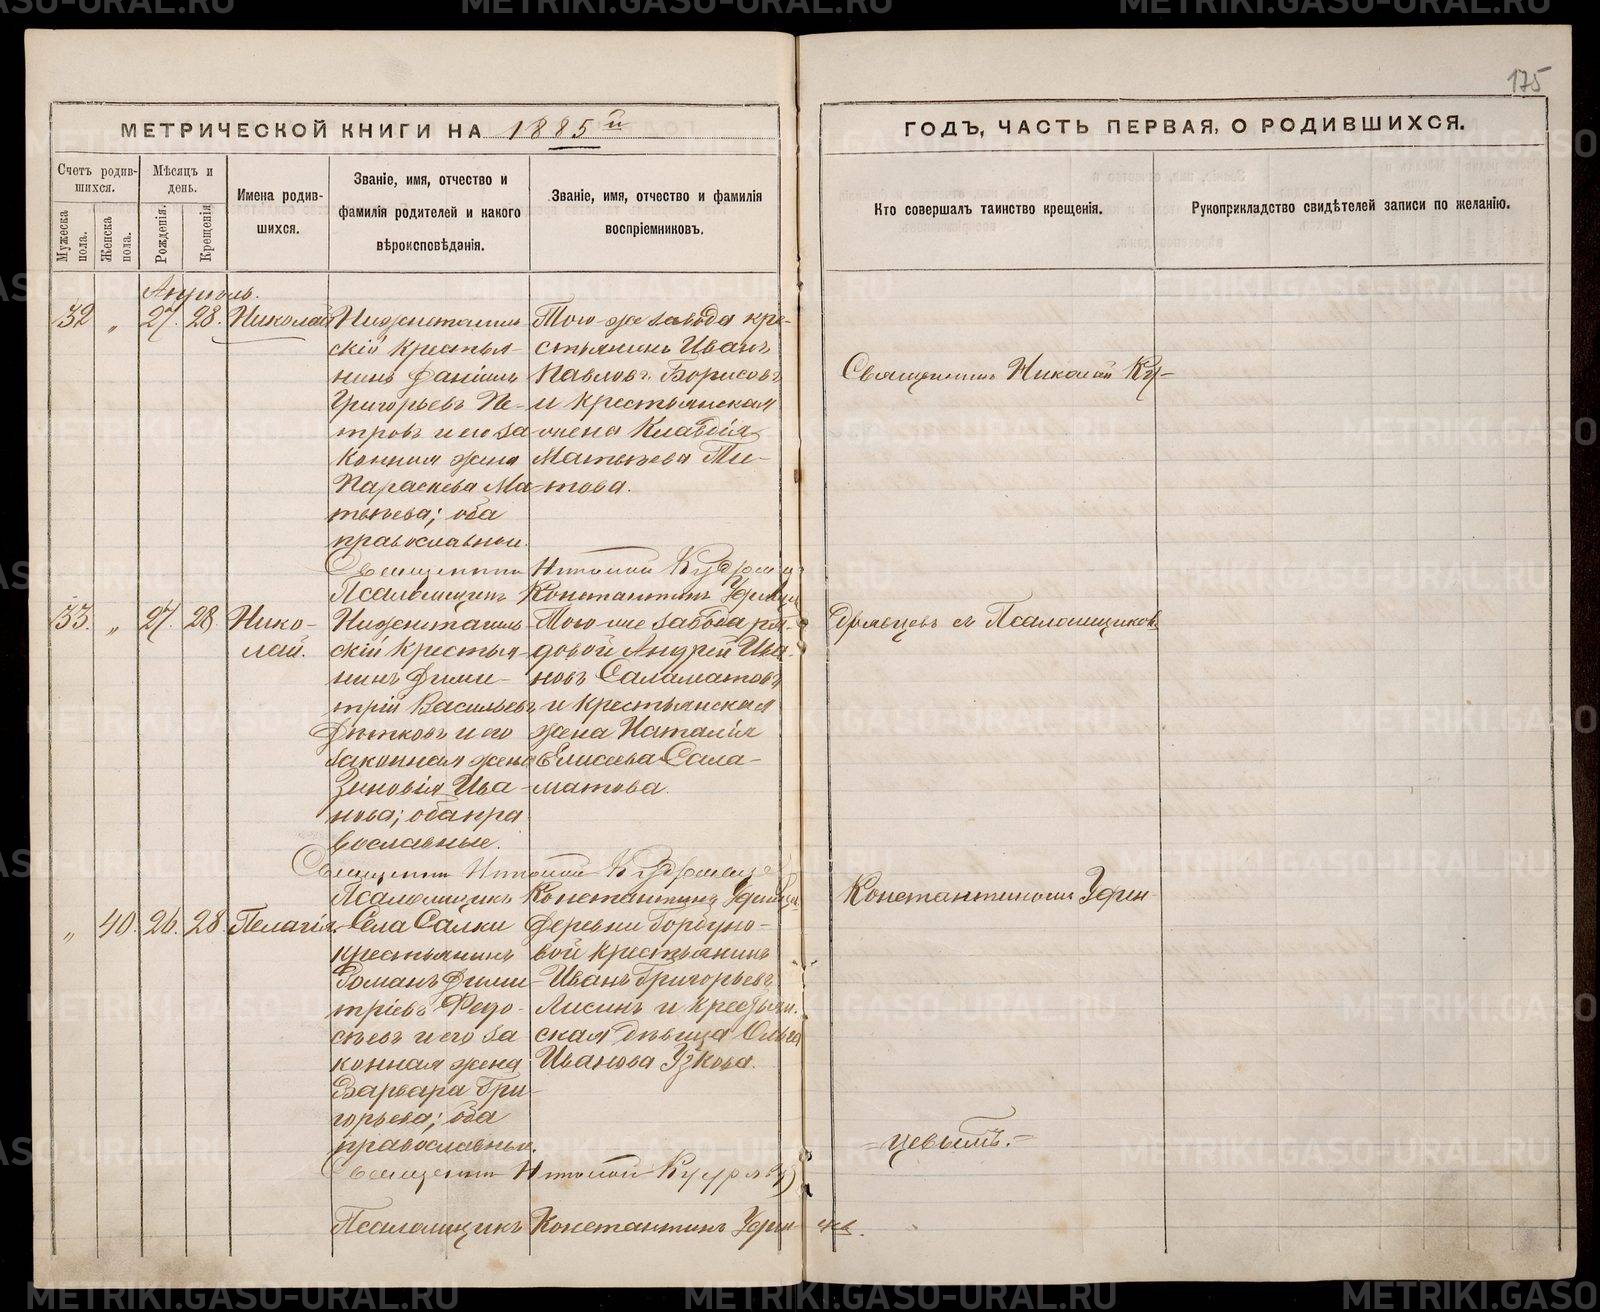 175
МЕТРИЧЕСКОЙ КНИГИ НА 1885й
ГОДЪ, ЧАСТЬ ПЕРВАЯ, О РОДИВШИХСЯ.
Счетъ родившихся.
Мужеска пола.
Женска пола.
Мѣсяцъ и день.
Рожденія.
Крещенія.
Имена родившихся.
Званіе, имя, отчество и фамилія родителей и какого вѣроисповѣданія.
Званіе, имя, отчество и фамилія воспріемниковъ.
Кто совершалъ таинство крещенія.
Рукоприкладство свидѣтелей записи по желанію.
Апрѣль.
32 „ 27. 28. Николай
Нижнетагиль-
скій крестья-
нинъ Даніилъ
Григорьевъ Пе-
тровъ и его за-
конная жена
Параскева Ма-
тѣвева; оба
православные.
Того-же завода кре-
стьянинъ Иванъ
Павловъ Борисовъ
и крестьянская
жена Клавдія
Матвѣева Ти-
това.
Священникъ Николай Ку-
Священникъ Николай Кудрявц
Псаломщикъ Константинъ Удинц
33. „ 27. 28. Нико-
лай.
Нижнетагиль-
скій крестья-
нинъ Дими-
трій Васильевъ
и его
законная жена
Зиновія Ива-
нова; оба пра
вославные.
Того-же завода ря-
довой Андрей Ива-
новъ Саламатовъ
и крестьянская
жена Наталія
Елисеева Сала-
матова.
дрявцевъ съ Псаломщиком
Священникъ Николай Кудрявце
Псаломщикъ Константинъ
Константиномъ
„ 40. 26. 28 Пелагія.
Села Салки
крестьянинъ
Романъ Дими-
тріевъ Федо-
сѣевъ и его за
конная жена
Варвара Гри-
горьева; оба
православные.
Деревни Горбуно-
вой крестьянинъ
Иванъ Григорьевъ
Лисинъ и крестьян.
ская дѣвица Ольга
Иванова Узкова.
-цевымъ.-
Священникъ Николай Кудрявц
Псаломщикъ Константинъ
METRIKI.GASO-URAL.RU